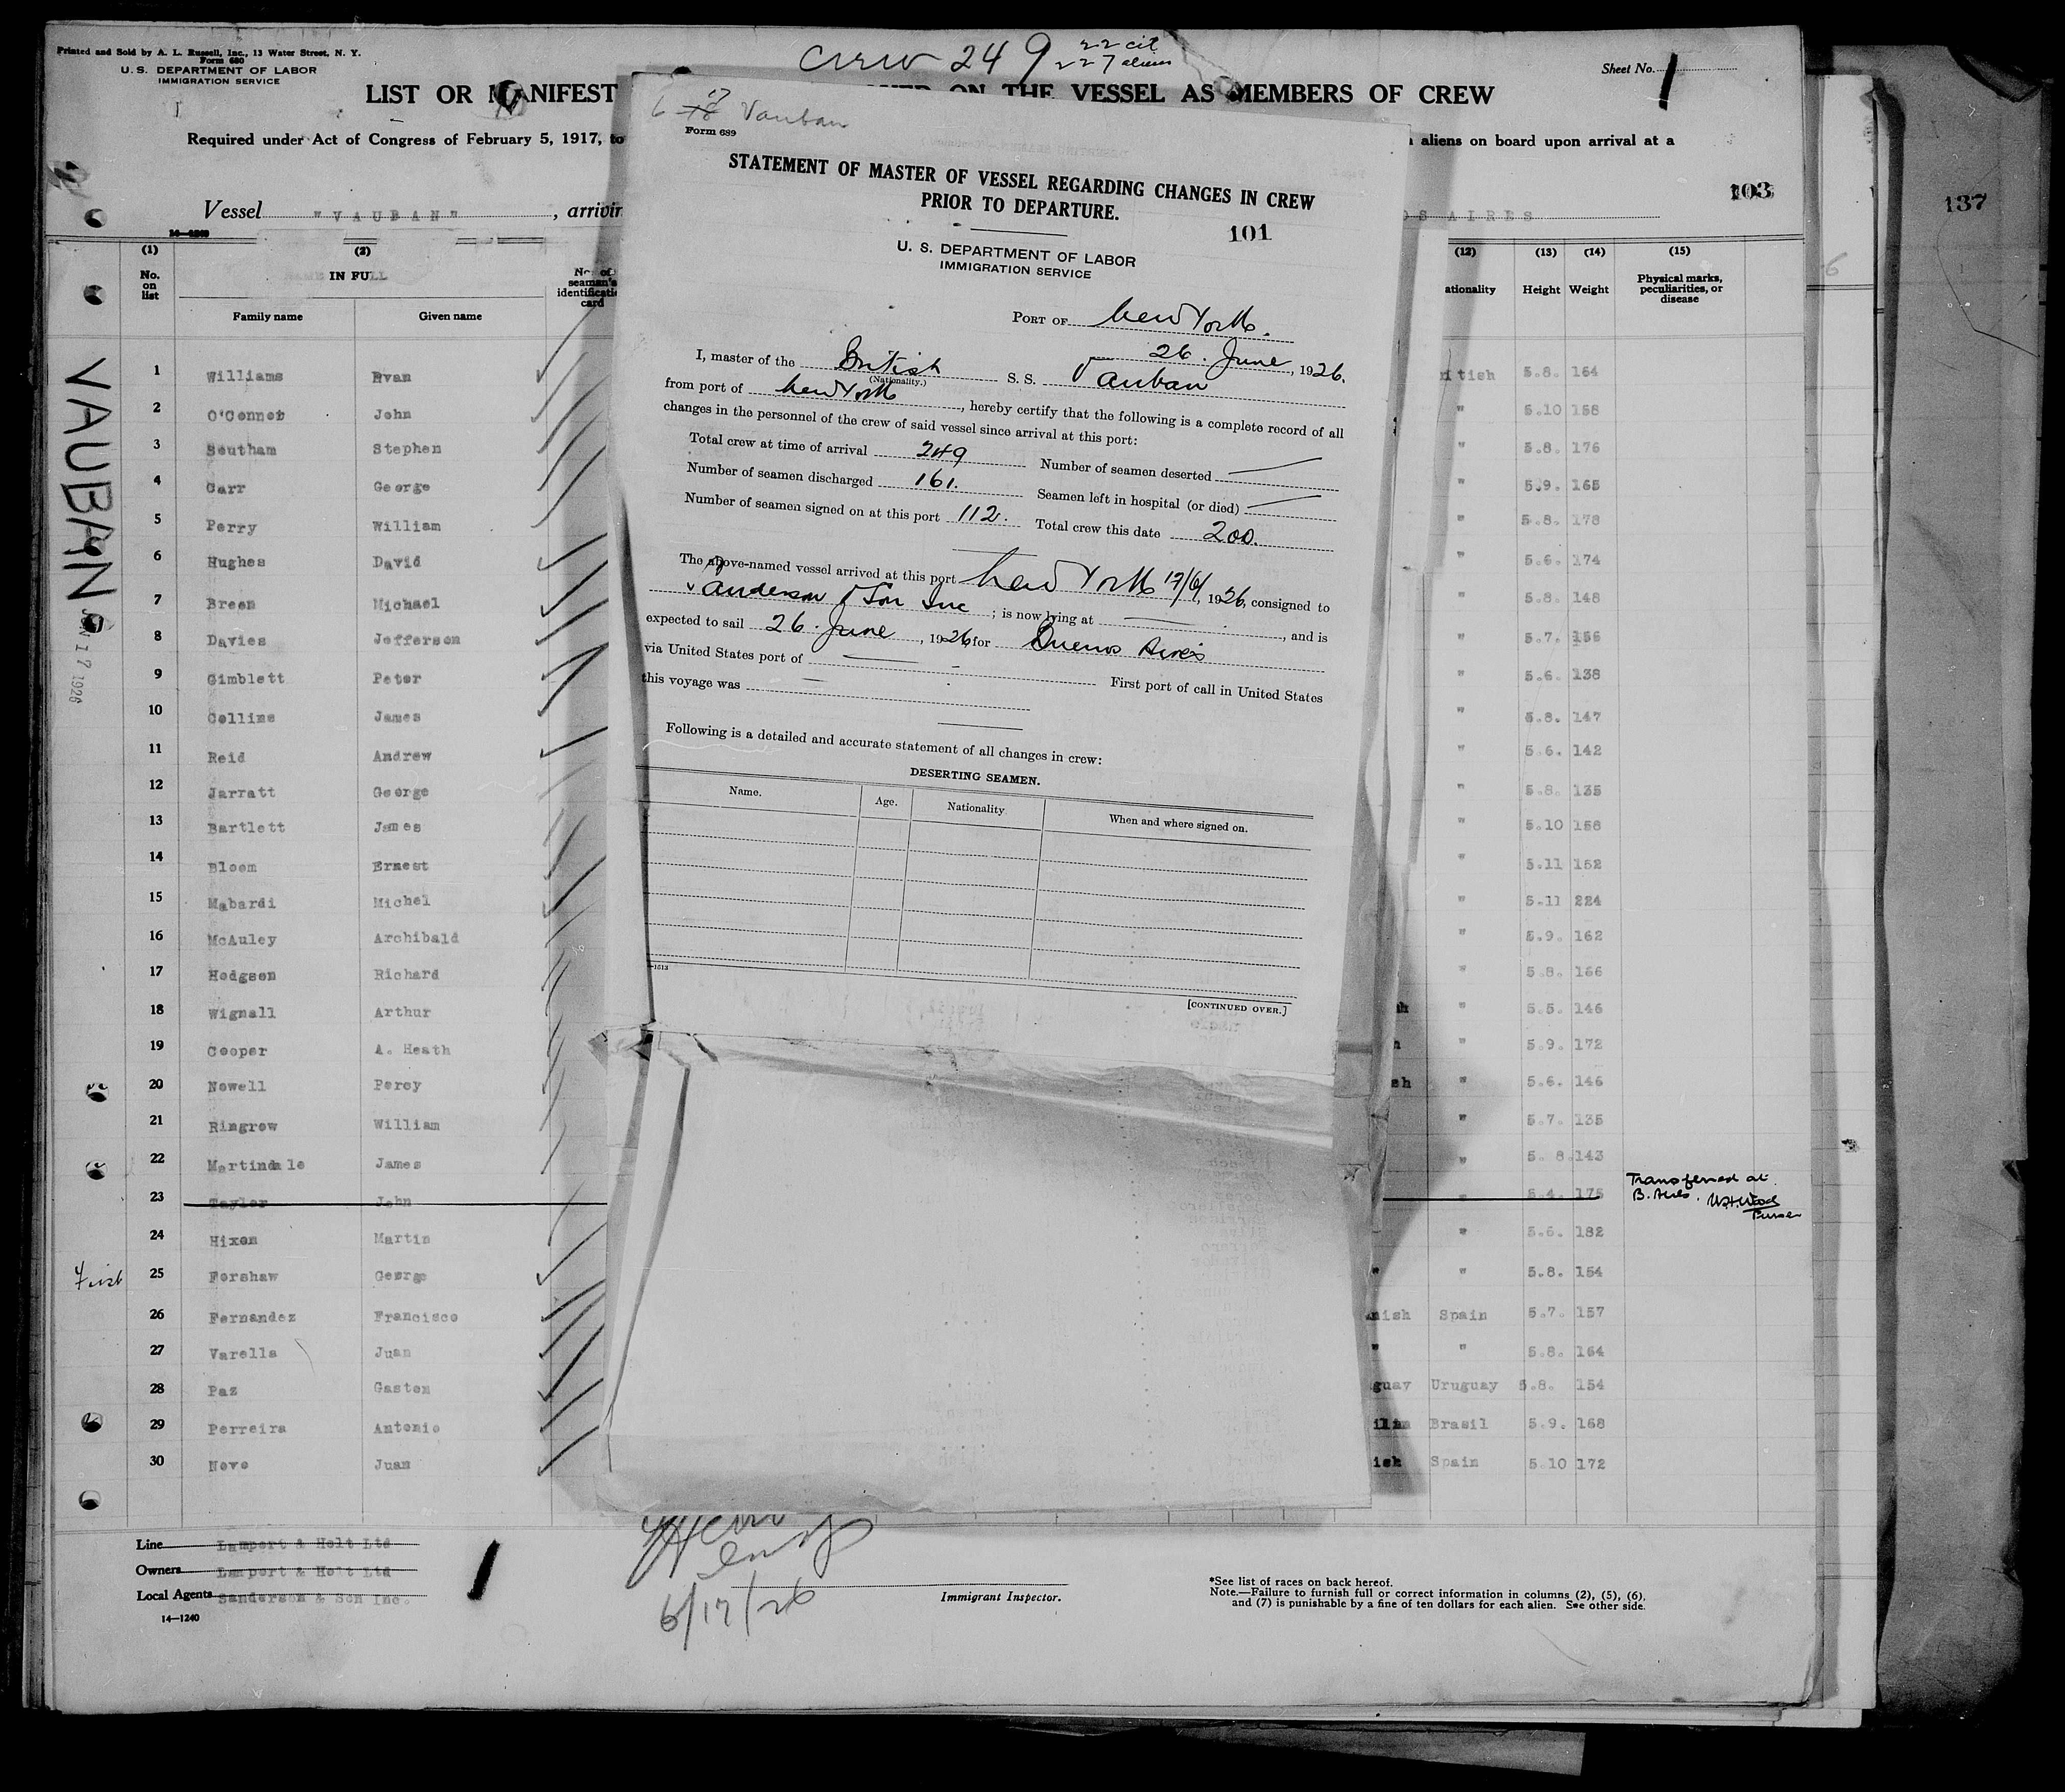 Printed and Sold by A. L. Russell, Inc., 13 Water Street, N. Y.
Form 680
U. S. DEPARTMENT OF LABOR
IMMIGRATION SERVICE
Crew 249 22 cit
227 aliens
Sheet No. 1
LIST OR MANIFEST ON THE VESSEL AS MEMBERS OF CREW
Required under Act of Congress of February 5, 1917, to aliens on board upon arrival at a
103
137
Vessel "VAUBAN", arrivin OS AIRES
14—1240
(1) (2) (12) (13) (14) (15)
No. on list
NAME IN FULL
Family name Given name
No. of seaman's identificati card
ationality Height Weight Physical marks, peculiarities, or disease
VAUBAN
JUN 17 1926
1 Williams Evan itish 5.8. 164
2 O'Connor John " 5.10 158
3 Southam Stephen " 5.8. 176
4 Carr George " 5.9. 165
5 Perry William " 5.8. 178
6 Hughes David " 5.6. 174
7 Breen Michael " 5.8. 148
8 Davies Jefferson " 5.7. 156
9 Gimblett Peter " 5.6. 138
10 Collins James " 5.8. 147
11 Reid Andrew " 5.6. 142
12 Jarratt George " 5.8. 135
13 Bartlett James " 5.10 158
14 Bloom Ernest " 5.11 152
15 Mabardi Michel " 5.11 224
16 McAuley Archibald " 5.9. 162
17 Hodgson Richard " 5.8. 166
18 Wignall Arthur h " 5.5. 146
19 Cooper A. Heath h " 5.9. 172
20 Newell Percy sh " 5.6. 146
21 Ringrow William " 5.7. 135
22 Martindale James " 5. 8. 143
23 Taylor John " 5.4. 175 Transferred at
B. Aires. W.H. Wood
Purser
24 Hixon Martin " 5.6. 182
First 25 Forshaw George " " 5.8. 154
26 Fernandez Francisco nish Spain 5.7. 157
27 Varella Juan " " 5.8. 164
28 Paz Gaston guay Uruguay 5.8. 154
29 Perreira Antonio ilian Brasil 5.9. 168
30 Novo Juan ish Spain 5.10 172
Line Lamport & Holt Ltd
Owners Lamport & Holt Ltd
Local Agents Sanderson & Son Inc.
14—1240
1
6/17/26
Immigrant Inspector.
*See list of races on back hereof.
Note.—Failure to furnish full or correct information in columns (2), (5), (6),
and (7) is punishable by a fine of ten dollars for each alien. See other side.
6 18 17 Vauban
Form 689
STATEMENT OF MASTER OF VESSEL REGARDING CHANGES IN CREW
PRIOR TO DEPARTURE.
101
U. S. DEPARTMENT OF LABOR
IMMIGRATION SERVICE
PORT OF New York.
26. June, 1926.
I, master of the British S. S. Vauban
(Nationality.)
from port of New York, hereby certify that the following is a complete record of all
changes in the personnel of the crew of said vessel since arrival at this port:
Total crew at time of arrival 249 Number of seamen deserted
Number of seamen discharged 161. Seamen left in hospital (or died)
Number of seamen signed on at this port 112. Total crew this date 200.
The above-named vessel arrived at this port New York 17/6/, 1926, consigned to
Sanderson & Son Inc; is now lying at , and is
expected to sail 26. June, 1926 for Buenos Aires
via United States port of
First port of call in United States
this voyage was
Following is a detailed and accurate statement of all changes in crew:
DESERTING SEAMEN.
Name. Age. Nationality When and where signed on.
—1613
[CONTINUED OVER.]